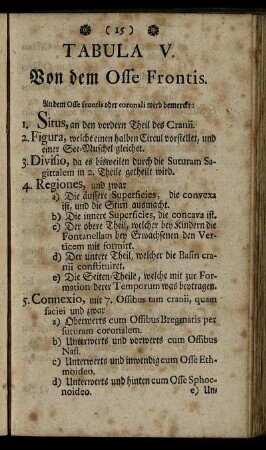 ( 15 )
TABULA V.
Von dem Osse Frontis.
An dem Osse frontis oder coronali wird bemerckt:
1. Situs, an den vordern Theil des Cranii.
2. Figura, welche einen halben Circul vorstellet, und
einer See-Muschel gleichet.
3. Divisio, da es bisweilen durch die Suturam Sa-
gittalem in 2. Theile getheilt wird.
4. Regiones, und zwar
a) Die äussere Superficies, die convexa
ist, und die Stirn ausmacht.
b) Die innere Superficies, die concava ist.
c) Der obere Theil, welcher bey Kindern die
Fontanellam bey Erwachsenen den Ver-
ticem mit formirt.
d) Der untere Theil, welcher die Basin cra-
nii constituiret.
e) Die Seiten-Theile, welche mit zur For-
mation derer Temporum was beytragen.
5. Connexio, mit 7. Ossibus tam cranii, quam
faciei und zwar
a) Oberwerts cum Ossibus Bregmatis per
suturam coronalem.
b) Unterwerts und vorwerts cum Ossibus
Nasi.
c) Unterwerts und inwendig cum Osse Eth-
moideo.
d) Unterwerts und hinten cum Osse Sphoe-
noideo.
e) Un-